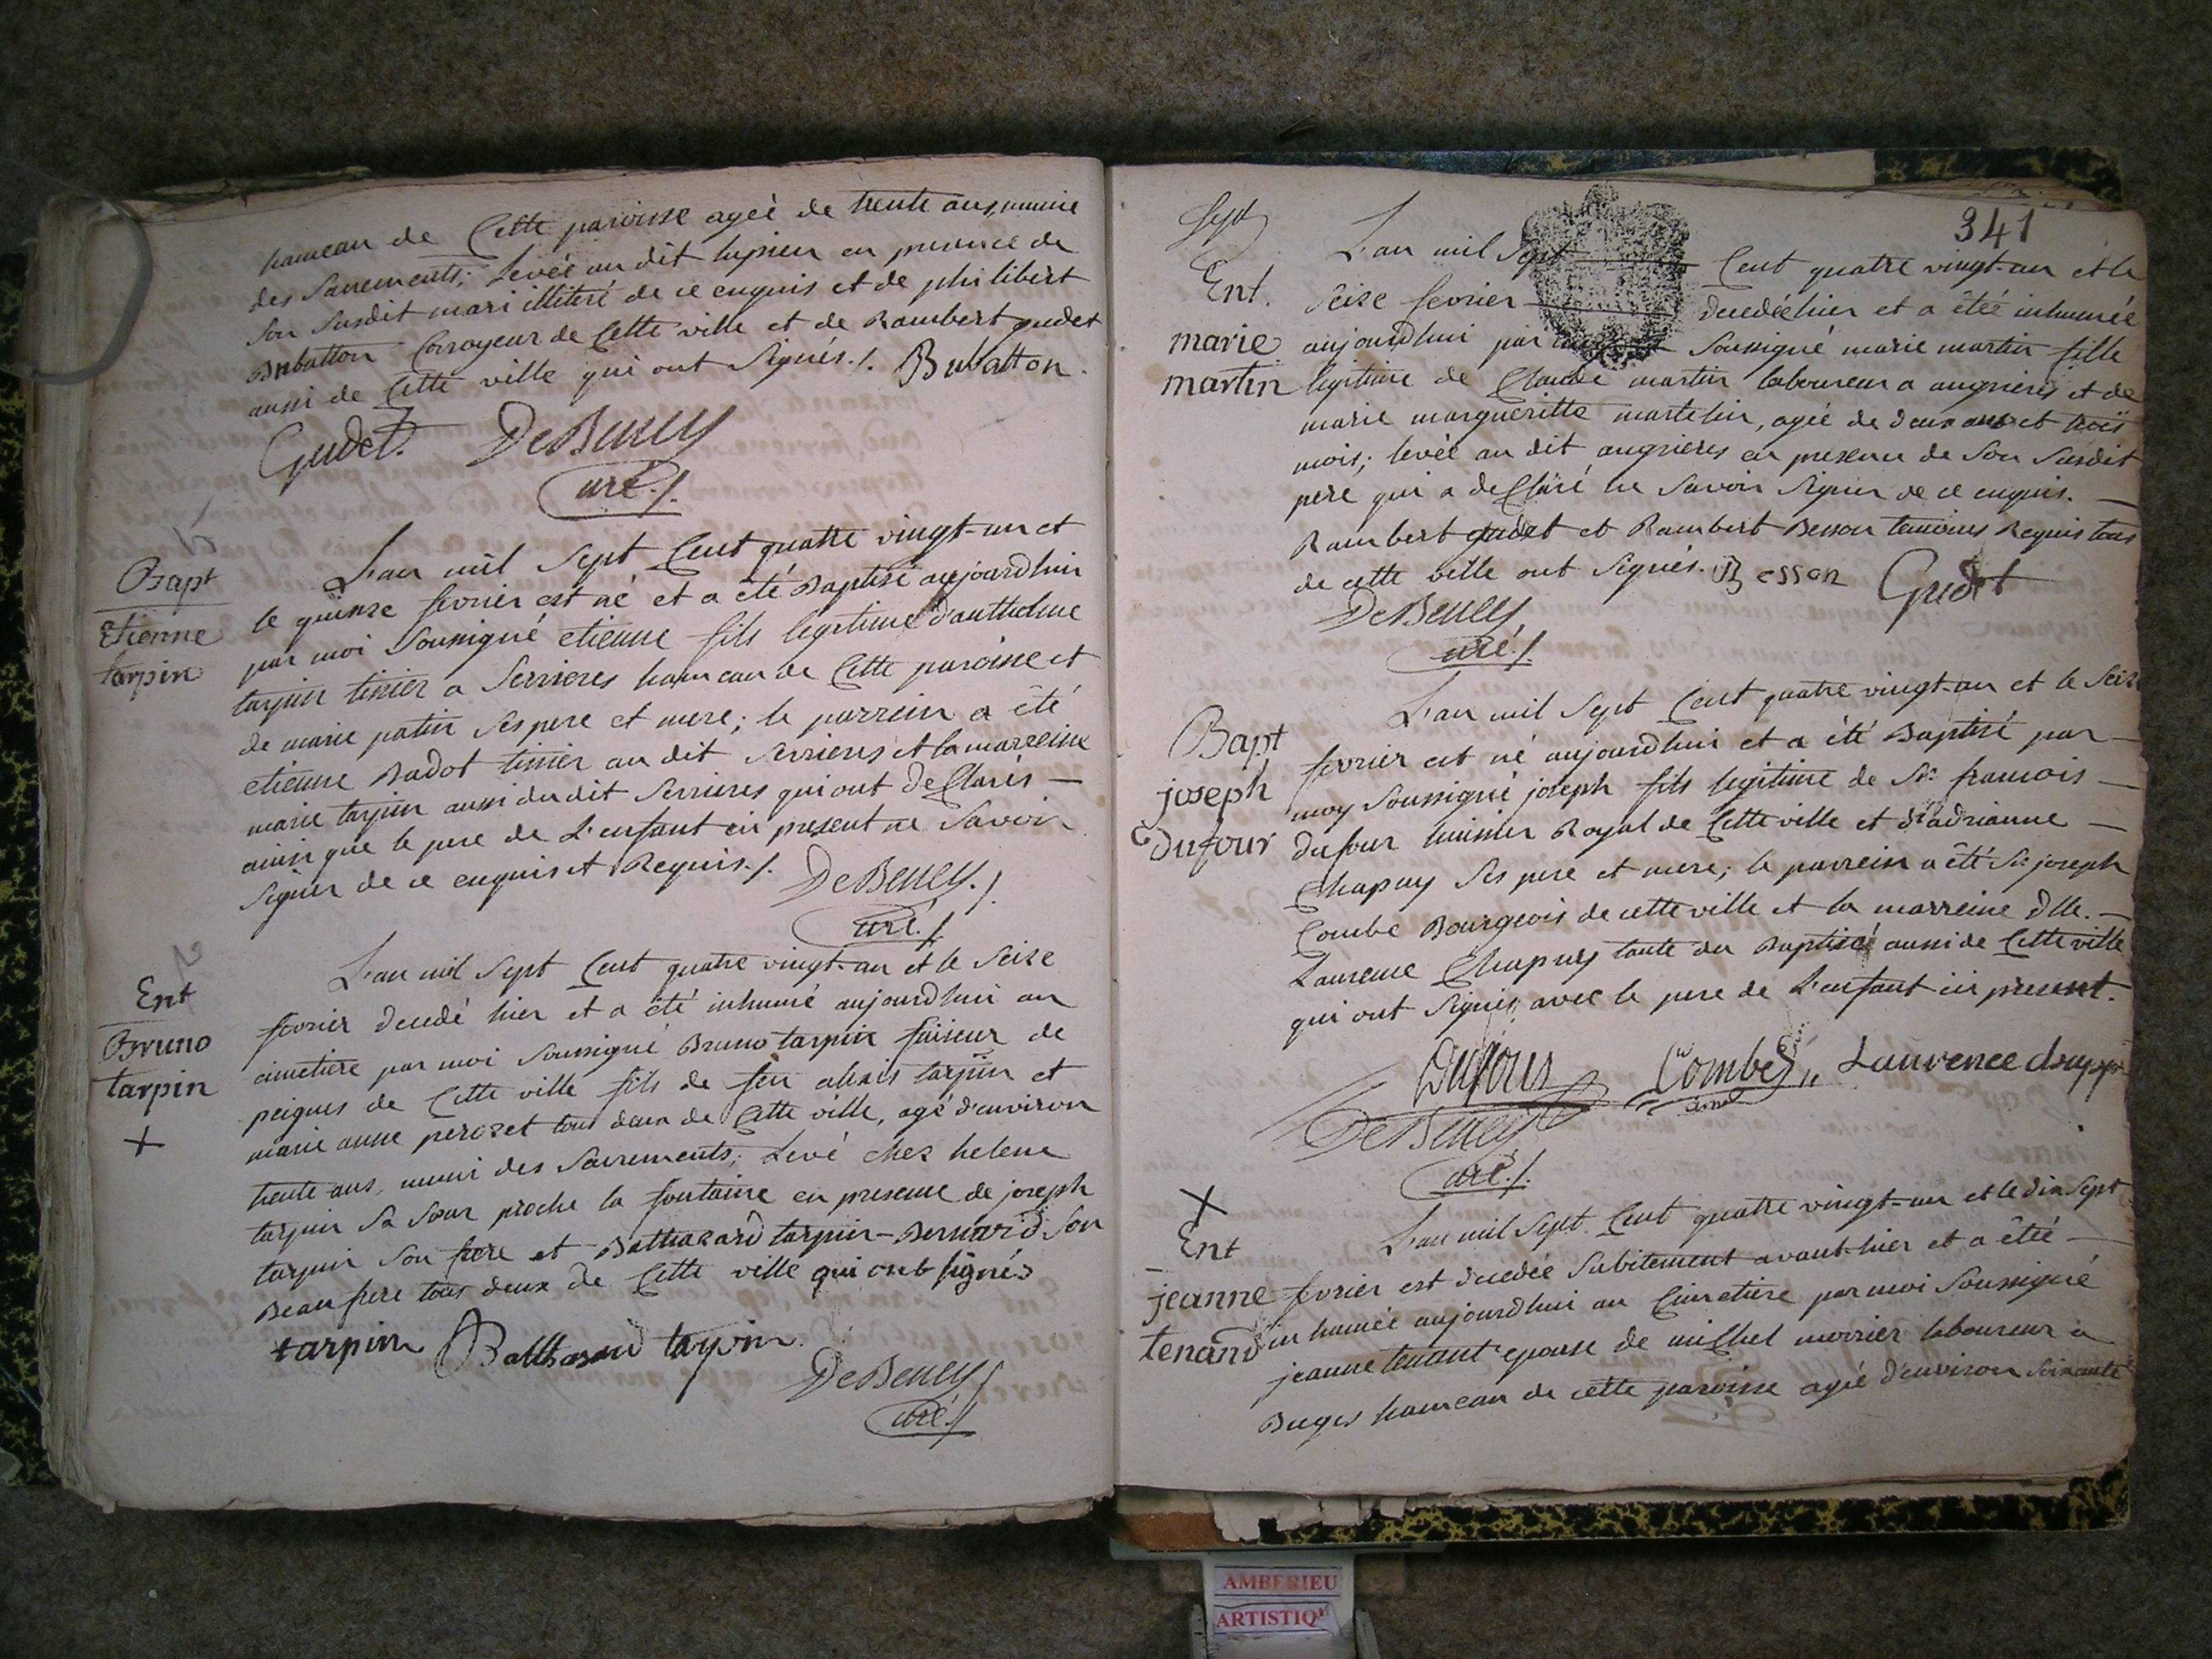 hameau de Cette paroisse agée de trente ans, munie
des Sacrements; Levée au dit lupieu en presence de
son susdit mari illiteré de ce enquis et de philibert
Bubatton Corroyeur de Cette ville et de Rambert gudet
aussi de Cette ville qui ont Signés./. Bubatton.
Gudet. DeBeney
curé./.
Bapt
Etienne
tarpin
L'an mil Sept Cent quatre vingt-un et
le quinze fevrier est né et a été Baptisé aujourdhuy
par moi Soussigné etienne fils legitime d'anthelme
tarpin tissier a Serrieres hameau de Cette paroisse et
de marie patin Ses pere et mere; le parrein a êté
etienne Badot tissier au dit Serrieres et la marreine
marie tarpin aussi du dit Serrieres qui ont deClarés —
ainsi que le pere de L'enfant ici present ne Savoir
Signer de ce enquis et Requis./. DeBeney./.
curé./.
Ent
Bruno
tarpin
+
L'an mil Sept Cent quatre vingt-un et le Seize
fevrier decedé hier et a été inhumé aujourdhui au
cimetiere par moi Soussigné Bruno tarpin faiseur de
peignes de Cette ville fils de feu alexis tarpin et
marie anne perozet tous deux de Cette ville, agé d'environ
trente ans, muni des Sacrements; Levé chez helene
tarpin Sa Sœur proche la fontaine en presence de joseph
tarpin Son frere et Balthazard tarpin-Bernard Son
Beaufrere tous deux de Cette ville qui ont signés
tarpin Balthasard tarpin.
DeBeney/
curé./
341
Sept
Ent.
marie
martin
L'an mil Sept Cent quatre vingt-un et le
Seize fevrier decedée hier et a êtée inhumée
aujourdhui par Soussigné marie martin fille
legitime de Claude martin laboureur a angrieres et de
marie margueritte martelin, agée de deux ans et trois
mois; levée au dit angrieres en presence de Son Susdit
pere qui a deClaré ne Savoir Signer de ce enquis. —
Rambert gudet et Rambert Besson temoins Requis tous
de cette ville ont Signés. Besson Gudet
DeBeney
curé./
Bapt
joseph
Dufour
L'an mil Sept Cent quatre vingt-un et le Seize
fevrier est né aujourdhui et a été Baptisé par —
moy Soussigné joseph fils legitime de Sr. francois —
dufour huissier Royal de Cette ville et dadrianne —
Chapuy Ses pere et mere; le parrein a êté Sr. joseph
Combe Bourgeois de cette ville et la marreine dlle. —
Laurence Chapuy tante du Baptisé aussi de Cette ville
qui ont Signés avec le pere de L'enfant ici present.
Dufour Combe Laurence chapuy
DeBeney
curé./.
+
Ent
jeanne
tenand
L'an mil Sept Cent quatre vingt-un et le dix Sept
fevrier est decedée Subitement avant-hier et a êtée —
inhumée aujourdhui au Cimetiere par moi Soussigné
jeanne tenant epouse de miChel morrier laboureur a
Buges hameau de cette paroisse agée d'environ Soixante
AMBERIEU
ARTISTIQ